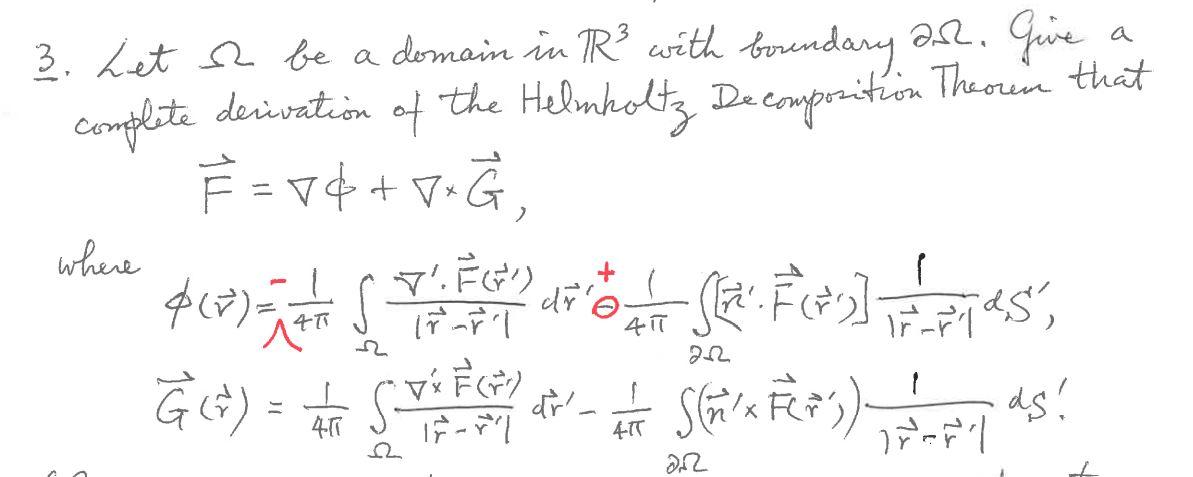 3. Let Ω be a domain in ℝ³ with boundary ∂Ω. Give a
complete derivation of the Helmholtz Decomposition Theorem that
F⃗ = ∇ϕ + ∇×G⃗,
where
ϕ(r⃗) = - 1/4π ∫_Ω ∇'·F⃗(r⃗')/|r⃗-r⃗'| dr⃗' + ⊖ 1/4π ∫_∂Ω [n⃗'·F⃗(r⃗')] 1/|r⃗-r⃗'| dS',
G⃗(r⃗) = 1/4π ∫_Ω ∇'×F⃗(r⃗')/|r⃗-r⃗'| dr⃗' - 1/4π ∫_∂Ω (n⃗'×F⃗(r⃗')) 1/|r⃗-r⃗'| dS'.